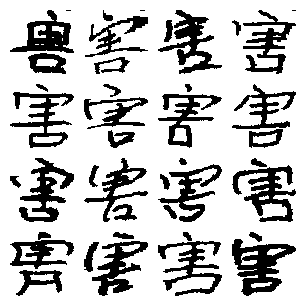 害害害害
害害害害
害害害害
害害害害